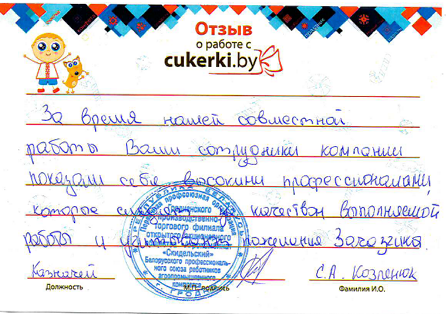 Отзыв
о работе с
cukerki.by
За время нашей совместной
работы Ваши сотрудники компании
показали себя высокими профессионалами,
которые качеством выполняемой
работы и пожелания Заказчика.
Казначей С.А. Козленюк
Должность М.П. подпись Фамилия И.О.
Торгового филиала
«Скидельский»
Белорусского профессиональ-
ного союза работников
агропромышленного
комплекса